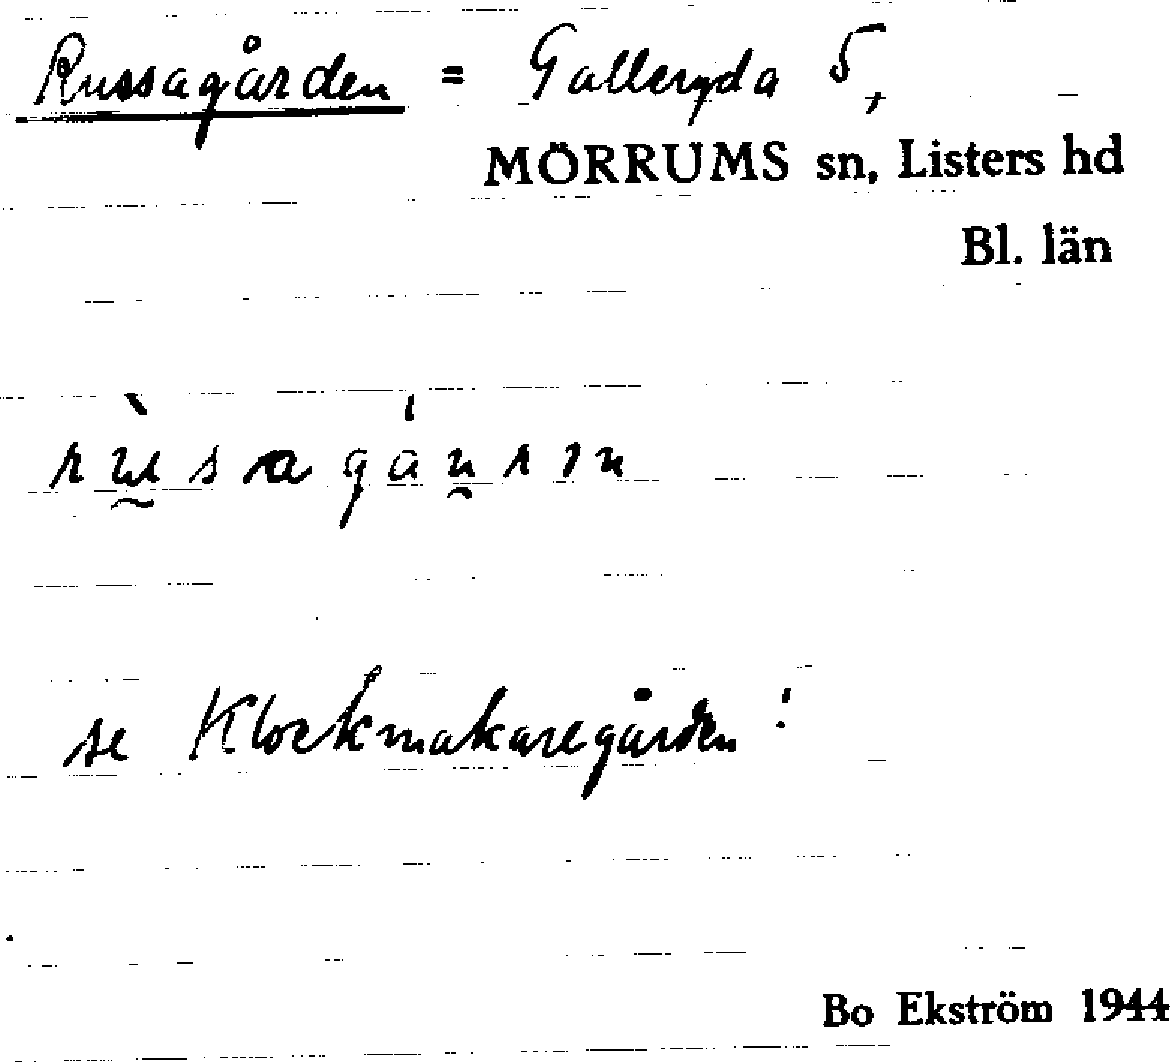 Russagården = Galleryda 5,
MÖRRUMS sn, Listers hd
Bl. län
se Klockmakaregården!
Bo Ekström 1944